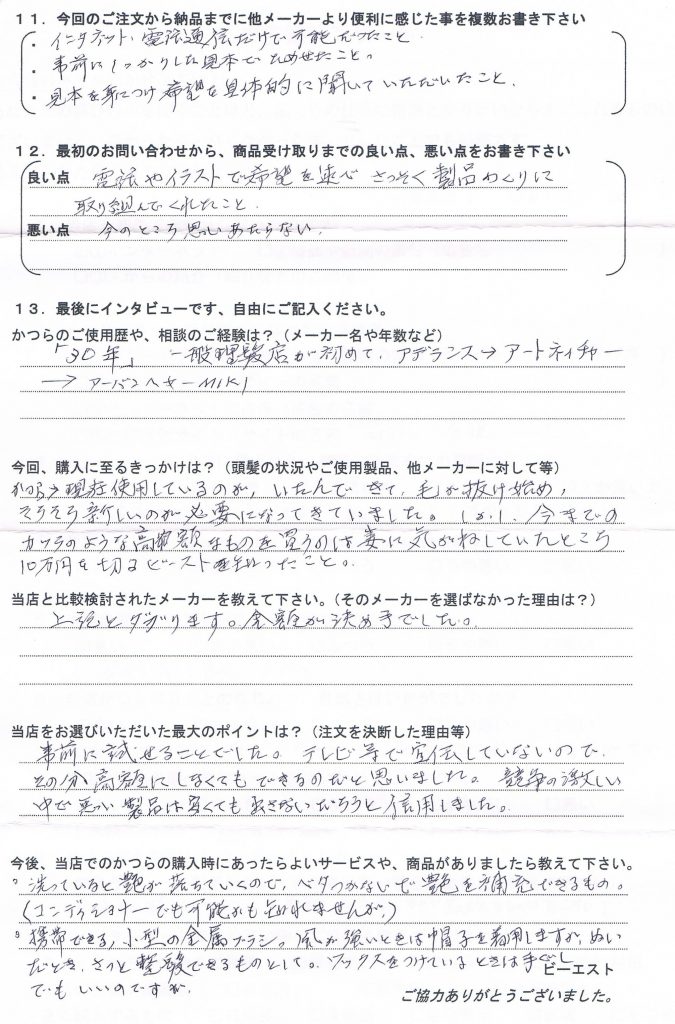 11．今回のご注文から納品までに他メーカーより便利に感じた事を複数お書き下さい
・インタネット、電話通信だけで可能だったこと
・事前にしっかりした見本でためせたこと。
・見本を身につけ希望を具体的に聞いていただいたこと．
12．最初のお問い合わせから、商品受け取りまでの良い点、悪い点をお書き下さい
良い点　電話やイラストで希望を述べ さっそく製品づくりに
取り組んでくれたこと．
悪い点　今のところ思いあたらない．
13．最後にインタビューです、自由にご記入ください。
かつらのご使用歴や、相談のご経験は？（メーカー名や年数など）
「30年」 一般理髪店が初めて、アデランス→アートネイチャー
→ アーバンヘヤーMIKI
今回、購入に至るきっかけは？（頭髪の状況やご使用製品、他メーカーに対して等）
現在使用しているのが、いたんできて、毛が抜け始め，
そろそろ新しいのが必要になってきていました。しかし、今までの
カツラのような高額なものを買うのは妻に気がねしていたところ
10万円を切るビーストを知ったこと。
当店と比較検討されたメーカーを教えて下さい。（そのメーカーを選ばなかった理由は？）
上記とダブります。金額が決め手でした。
当店をお選びいただいた最大のポイントは？（注文を決断した理由等）
事前に試せることでした。テレビ等で宣伝していないので、
その分高額にしなくてもできるのだと思いました。競争の激しい
中で悪い製品は安くても出さないだろうと信用しました。
今後、当店でのかつらの購入時にあったらよいサービスや、商品がありましたら教えて下さい。
洗っていると艶が落ちていくので、ベタつかないで艶を補充できるもの。
（コンディショナーでも可能かも知れませんが、）
携帯できる，小型の金属ブラシ。風が強いときは帽子を着用しますが、ぬい
だとき、さっと整髪できるものとして。ワックスをつけているときは手ぐし
でもいいのですが、
ビーエスト
ご協力ありがとうございました。